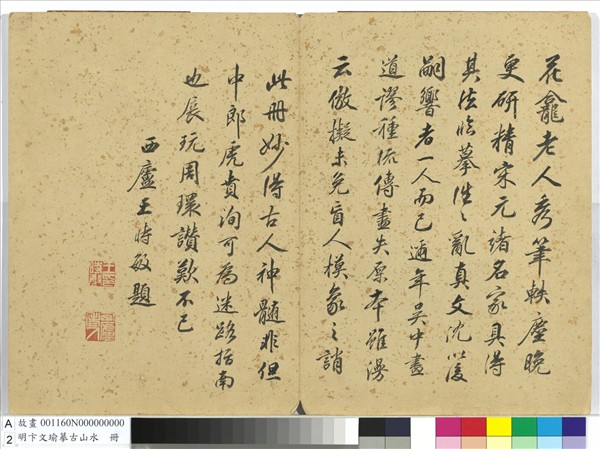 花龕老人秀筆軼塵晚
更研精宋元諸名家具得
其法臨摹往々亂真文沈以後
嗣響者一人而已邇年吳中畫
道謬種流傳盡失原本雖漫
云倣擬未免盲人模象之誚
此冊妙得古人神髓非但
中郎虎賁洵可為迷路指南
也展玩周環讚歎不已
西廬王時敏題
A
2
故畫 001160N000000000
明卞文瑜摹古山水 冊